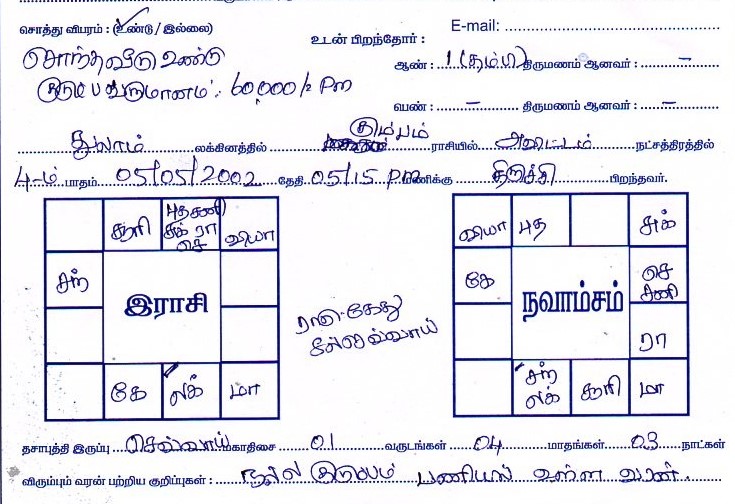 சொத்து விபரம் : (உண்டு / இல்லை)
உடன் பிறந்தோர் :
E-mail:
சொந்தவீடு உண்டு
ஆண் : 1 (தம்பி) திருமணம் ஆனவர் : –
குடும்ப வருமானம் : 60,000/- Pm
பெண் : – திருமணம் ஆனவர் : –
துலாம் லக்கினத்தில் கும்பம் ராசியில் அவிட்டம் நட்சத்திரத்தில்
4-ம் பாதம் 05/05/2002 தேதி 05/15 pm மணிக்கு திருச்சி பிறந்தவர்.
சூரி புத சனி சுக் ரா செ வியா
சந்
இராசி
கே லக் மா
ராகு-கேது
செவ்வாய்
வியா புத சுக்
கே செ சனி
நவாம்சம்
ரா
சந் லக் சூரி மா
தசாபுத்தி இருப்பு செவ்வாய் மகாதிசை 01 வருடங்கள் 04 மாதங்கள் 03 நாட்கள்
விரும்பும் வரன் பற்றிய குறிப்புகள் : நல்ல குடும்பம் பணியில் உள்ள வரன்.